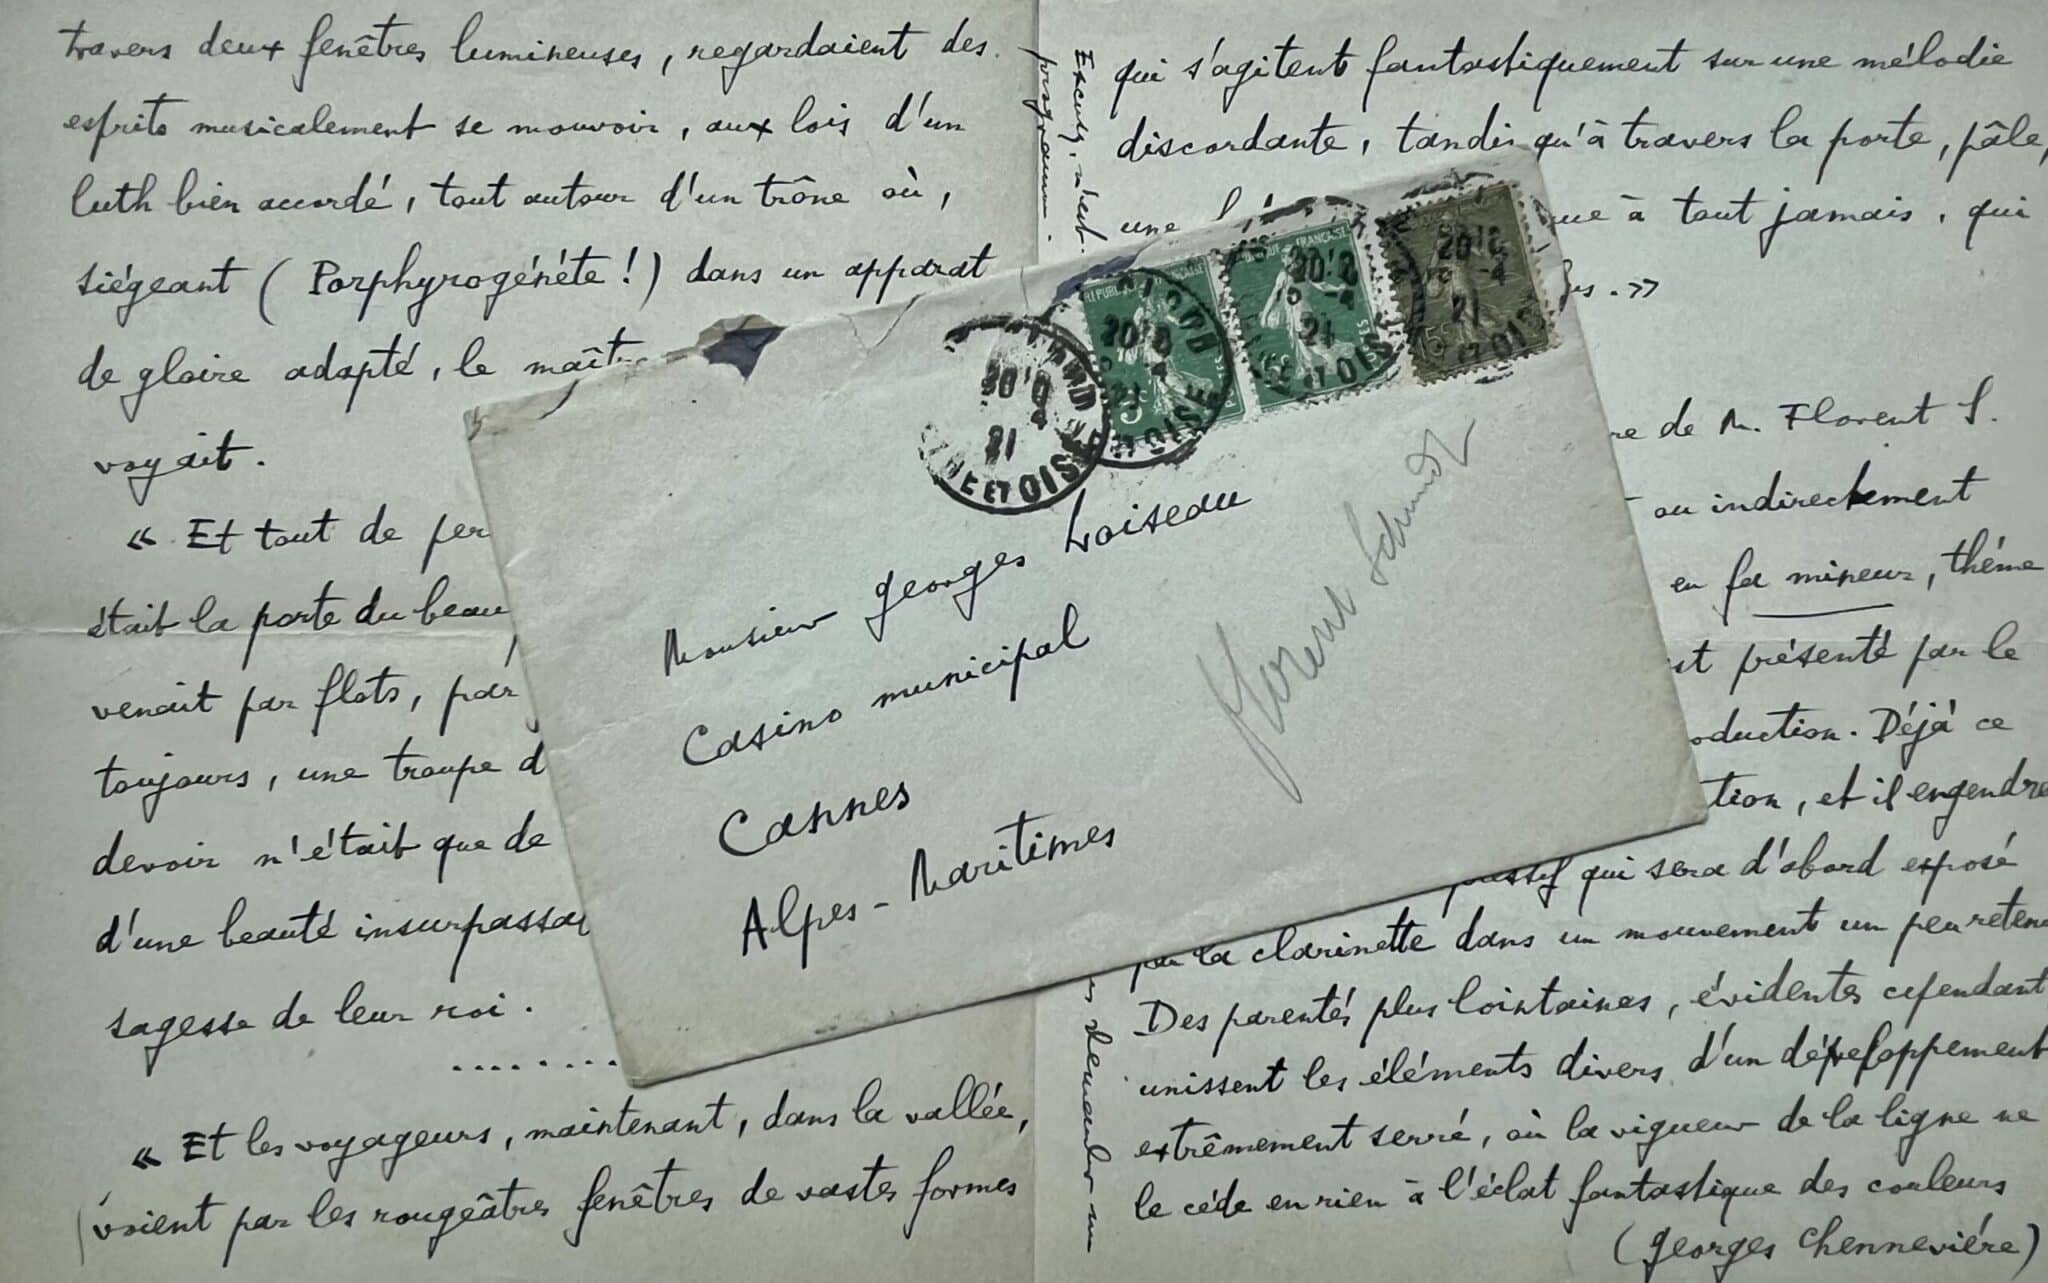 travers deux fenêtres lumineuses, regardaient des
esprits musicalement se mouvoir, aux lois d'un
luth bien accordé, tout autour d'un trône où,
siégeant (Porphyrogénéte!) dans un apparat
de gloire adapté, le maître
voyait.
« Et tout de per
était la porte du beau
venait par flots, par
toujours, une troupe d
devoir n'était que de
d'une beauté insurpassa
sagesse de leur roi.
........
« Et les voyageurs, maintenant, dans la vallée,
voient par les rougeâtres fenêtres de vastes formes
programm.
demander un
qui s'agitent fantastiquement sur une mélodie
discordante, tandis qu'à travers la porte, pâle,
une
ue à tout jamais, qui
.»
re de M. Florent S.
ou indirectement
en fa mineur, théme
st présenté par le
oduction. Déjà ce
tion, et il engendre
pressif qui sera d'abord exposé
par la clarinette dans un mouvement un peu retenu
Des parentés plus lointaines, évidentes cependant
unissent les éléments divers d'un développement
extrêmement serré, où la vigueur de la ligne ne
le céde en rien à l'éclat fantastique des couleurs
(Georges Chenneviére)
Monsieur Georges Loiseau
Casino municipal
Cannes
Alpes-Maritimes
Florent Schmidt
REPUBLIQUE FRANÇAISE
5c
15c
20
4
21
SEINE ET OISE